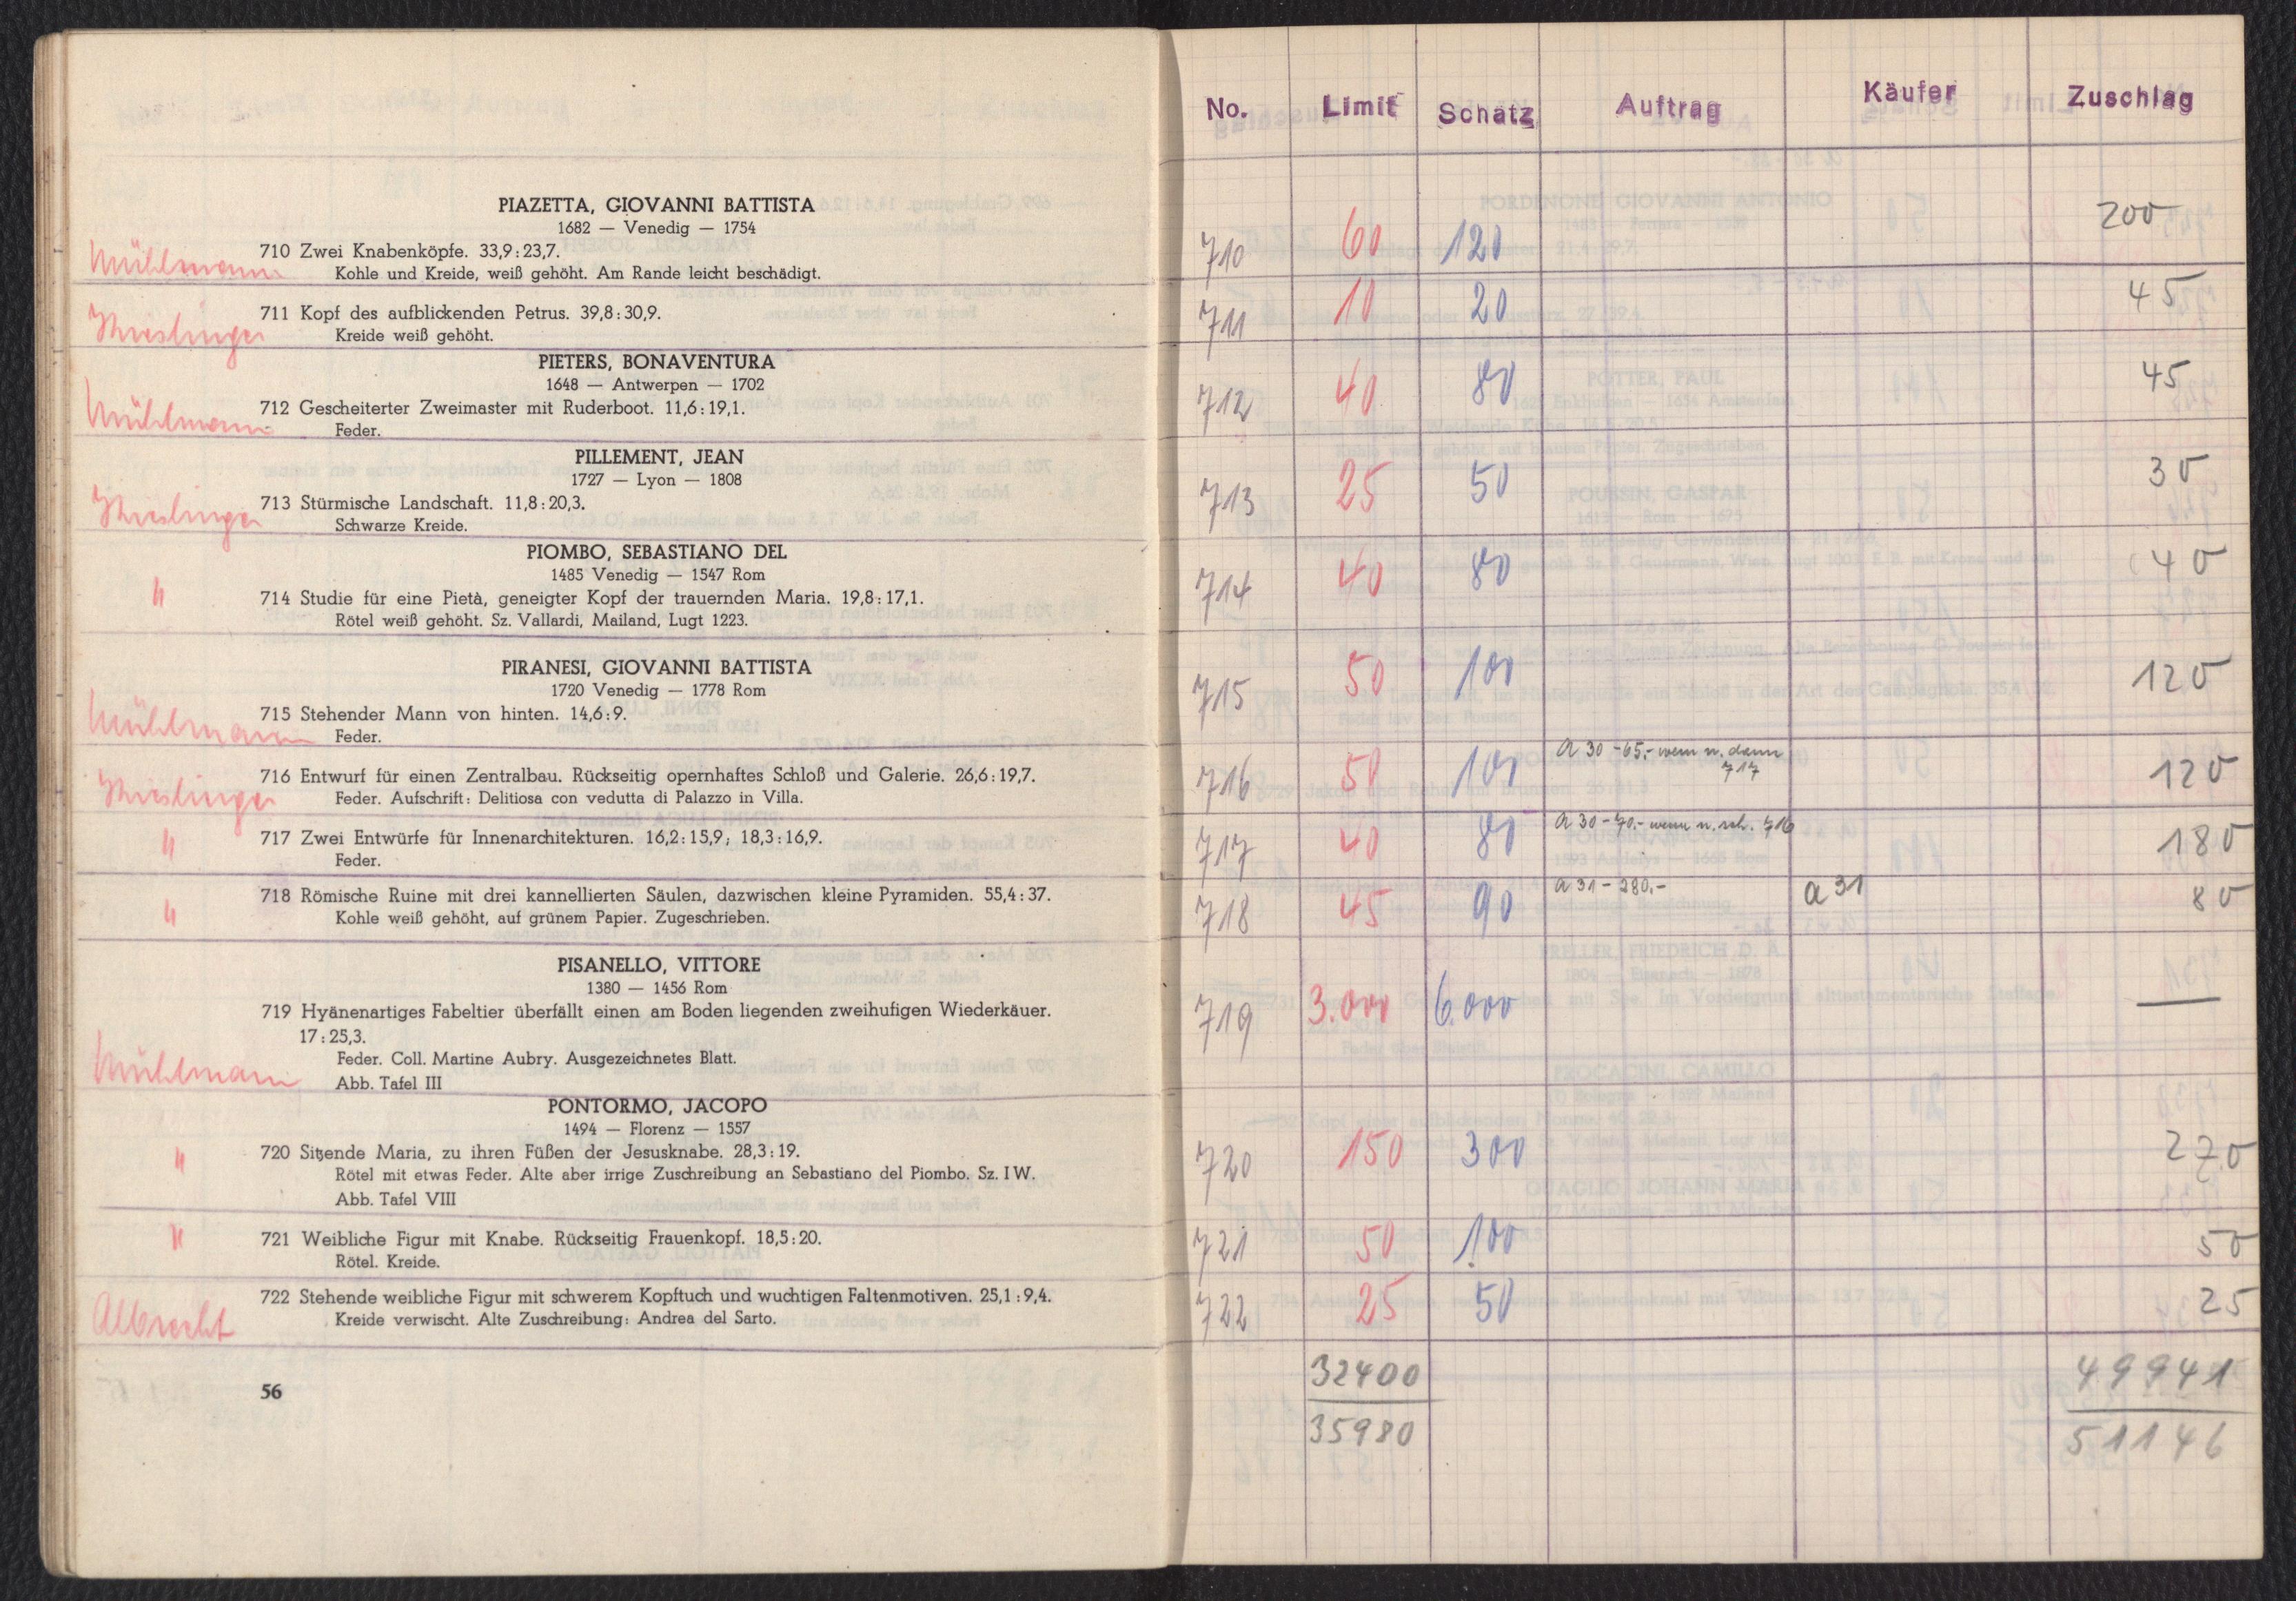 PIAZETTA, GIOVANNI BATTISTA
1682 — Venedig — 1754
Mühlmann
710 Zwei Knabenköpfe. 33,9:23,7.
Kohle und Kreide, weiß gehöht. Am Rande leicht beschädigt.
711 Kopf des aufblickenden Petrus. 39,8:30,9.
Kreide weiß gehöht.
PIETERS, BONAVENTURA
1648 — Antwerpen — 1702
Mühlmann
712 Gescheiterter Zweimaster mit Ruderboot. 11,6:19,1.
Feder.
PILLEMENT, JEAN
1727 — Lyon — 1808
713 Stürmische Landschaft. 11,8:20,3.
Schwarze Kreide.
PIOMBO, SEBASTIANO DEL
1485 Venedig — 1547 Rom
"
714 Studie für eine Pietà, geneigter Kopf der trauernden Maria. 19,8:17,1.
Rötel weiß gehöht. Sz. Vallardi, Mailand, Lugt 1223.
PIRANESI, GIOVANNI BATTISTA
1720 Venedig — 1778 Rom
Mühlmann
715 Stehender Mann von hinten. 14,6:9.
Feder.
716 Entwurf für einen Zentralbau. Rückseitig opernhaftes Schloß und Galerie. 26,6:19,7.
Feder. Aufschrift: Delitiosa con vedutta di Palazzo in Villa.
"
717 Zwei Entwürfe für Innenarchitekturen. 16,2:15,9; 18,3:16,9.
Feder.
"
718 Römische Ruine mit drei kannellierten Säulen, dazwischen kleine Pyramiden. 55,4:37.
Kohle weiß gehöht, auf grünem Papier. Zugeschrieben.
PISANELLO, VITTORE
1380 — 1456 Rom
719 Hyänenartiges Fabeltier überfällt einen am Boden liegenden zweihufigen Wiederkäuer.
17:25,3.
Feder. Coll. Martine Aubry. Ausgezeichnetes Blatt.
Mühlmann
Abb. Tafel III
PONTORMO, JACOPO
1494 — Florenz — 1557
"
720 Sitzende Maria, zu ihren Füßen der Jesusknabe. 28,3:19.
Rötel mit etwas Feder. Alte aber irrige Zuschreibung an Sebastiano del Piombo. Sz. IW.
Abb. Tafel VIII
"
721 Weibliche Figur mit Knabe. Rückseitig Frauenkopf. 18,5:20.
Rötel. Kreide.
Albrecht
722 Stehende weibliche Figur mit schwerem Kopftuch und wuchtigen Faltenmotiven. 25,1:9,4.
Kreide verwischt. Alte Zuschreibung: Andrea del Sarto.
56
No. Limit Schätz Auftrag Käufer Zuschlag
710 60 120 200
711 10 20 45
712 40 80 45
713 25 50 30
714 40 80 40
715 50 100 120
716 50 100 a 30 - 65.- wenn n. dann 717 120
717 40 80 a 30 - 70.- wenn n. 716 180
718 45 90 a 31 - 280.- a 31 80
719 3.000 6.000 —
720 150 300 270
721 50 100 50
722 25 50 25
32400 49941
35980 51146